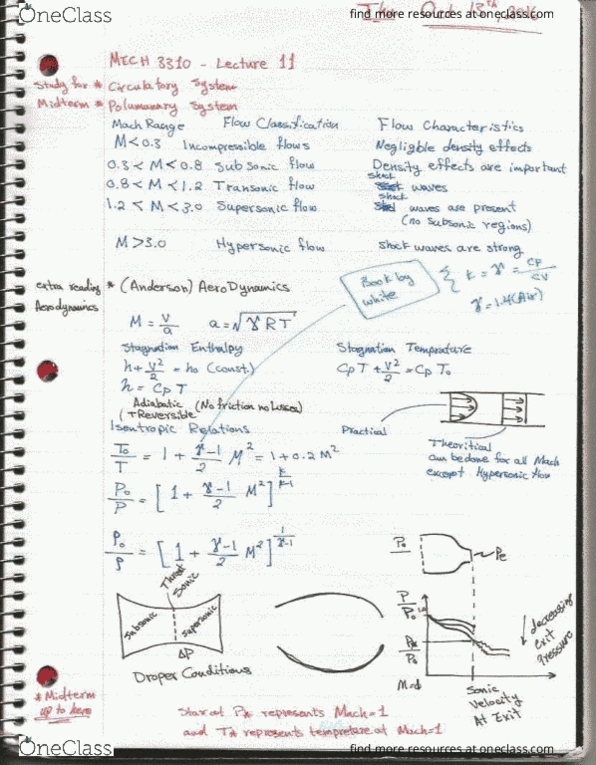 OneClass
find more resources at oneclass.com
Oct 13th, 2016
MECH 3310 - Lecture 11
Study for * Circulatory System
Midterm * Polumanary System
Mach Range Flow Classification Flow Characteristics
M < 0.3 Incompressible flows Negligble density effects
0.3 < M < 0.8 Sub Sonic flow Density effects are important
0.8 < M < 1.2 Transonic flow shock waves
1.2 < M < 3.0 Supersonic flow shock waves are present
(no subsonic regions)
M > 3.0 Hypersonic flow shock waves are strong
extra reading * (Anderson) AeroDynamics
Aerodynamics
Book by white
k = γ = Cp/Cv
γ = 1.4 (Air)
M = V/a a = √γRT
Stagnation Enthalpy Stagnation Temprature
h + V²/2 = h₀ (const.) CpT + V²/2 = CpT₀
h = CpT
Adiabatic (No friction no losses)
(+Reversible
Isontropic Relations
Practical
Theoritical
can be done for all Mach
except Hypersonic flow
T₀/T = 1 + γ-1/2 M² = 1 + 0.2 M²
P₀/P = [1 + γ-1/2 M²]^k/k-1
ρ₀/ρ = [1 + γ-1/2 M²]^1/γ-1
Throat
Sonic
Subsonic
Supersonic
ΔP
Droper Conditions
P₀
Pe
P/P₀
1.0
P*/P₀
decreasing
exit
Pressure
Sonic
Velocity
At Exit
* Midterm
up to here
Star at P* represents Mach=1
and T* represents tempreture at Mach=1
OneClass
find more resources at oneclass.com